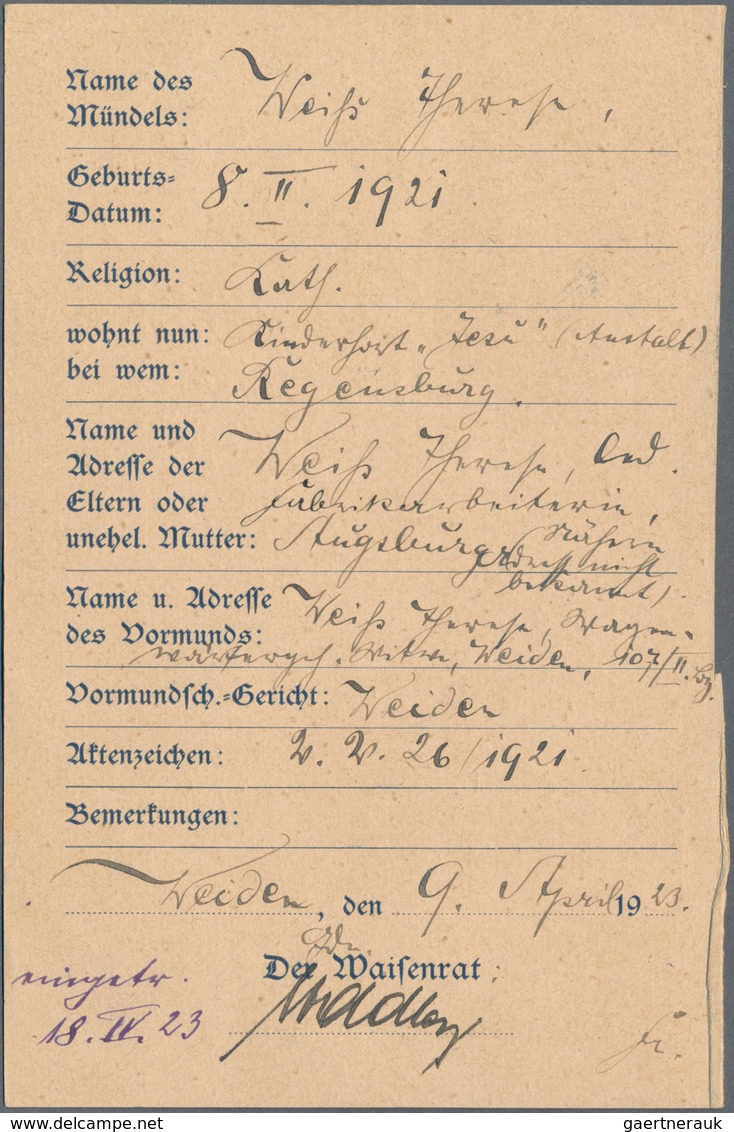 Name des
Mündels: Weiß Therese,
Geburts=
Datum: 8. II. 1921.
Religion: Kath.
wohnt nun: Kinderhort „Jesu" (Anstalt)
bei wem: Regensburg.
Name und
Adresse der Weiß Therese, led.
Eltern oder Fabrikarbeiterin,
unehel. Mutter: Augsburg Näherin
nicht
bekannt).
Name u. Adresse
des Vormunds: Weiß Therese, Wagen-
wärtergeh. Witwe, Weiden, 107/II.
Vormundsch.=Gericht: Weiden
Aktenzeichen: V. V. 26/1921
Bemerkungen:
Weiden, den 9. April 1923.
Der Waisenrat:
eingetr.
18. IV. 23
gaertnerauk